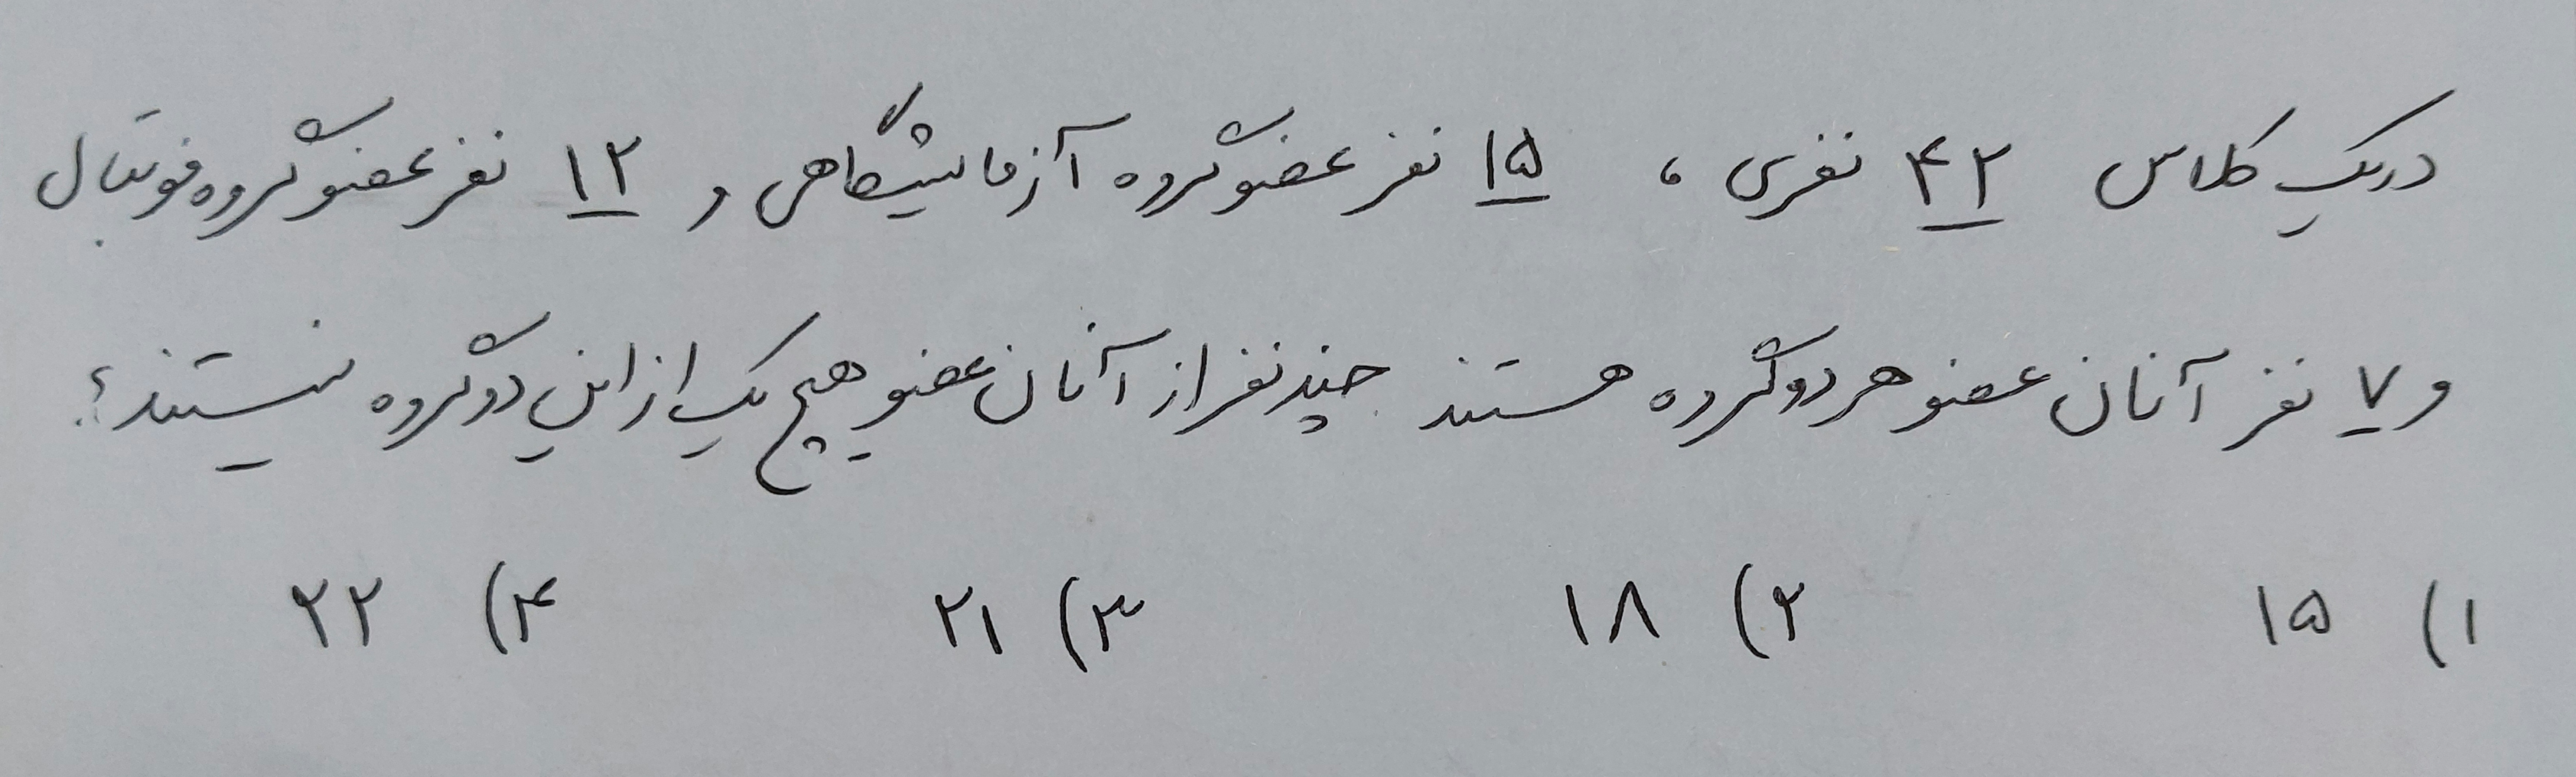 در یک کلاس ۴۲ نفری ، ۱۵ نفر عضو گروه آزمایشگاهی و ۱۲ نفر عضو گروه فوتبال
و ۷ نفر آنان عضو هر دو گروه هستند چند نفر از آنان عضو هیچ یک از این دو گروه نیستند؟
۱) ۱۵ ۲) ۱۸ ۳) ۲۱ ۴) ۲۲